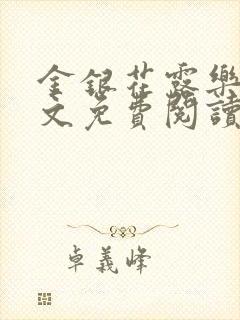 金銀花露樂
文免費閱讀
卓義峰